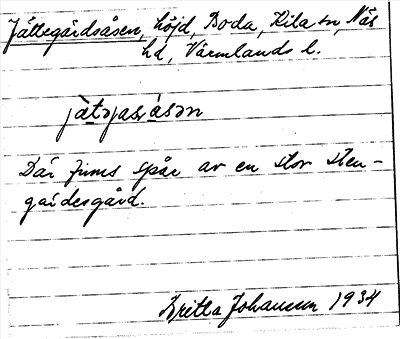 Jättegärdsåsen, höjd, Boda, Kila sn, Näs
hd, Värmlands l.
jàtəjas̀ásən
Där finns spår av en stor sten-
gärdesgård.
Britta Johansson 1934